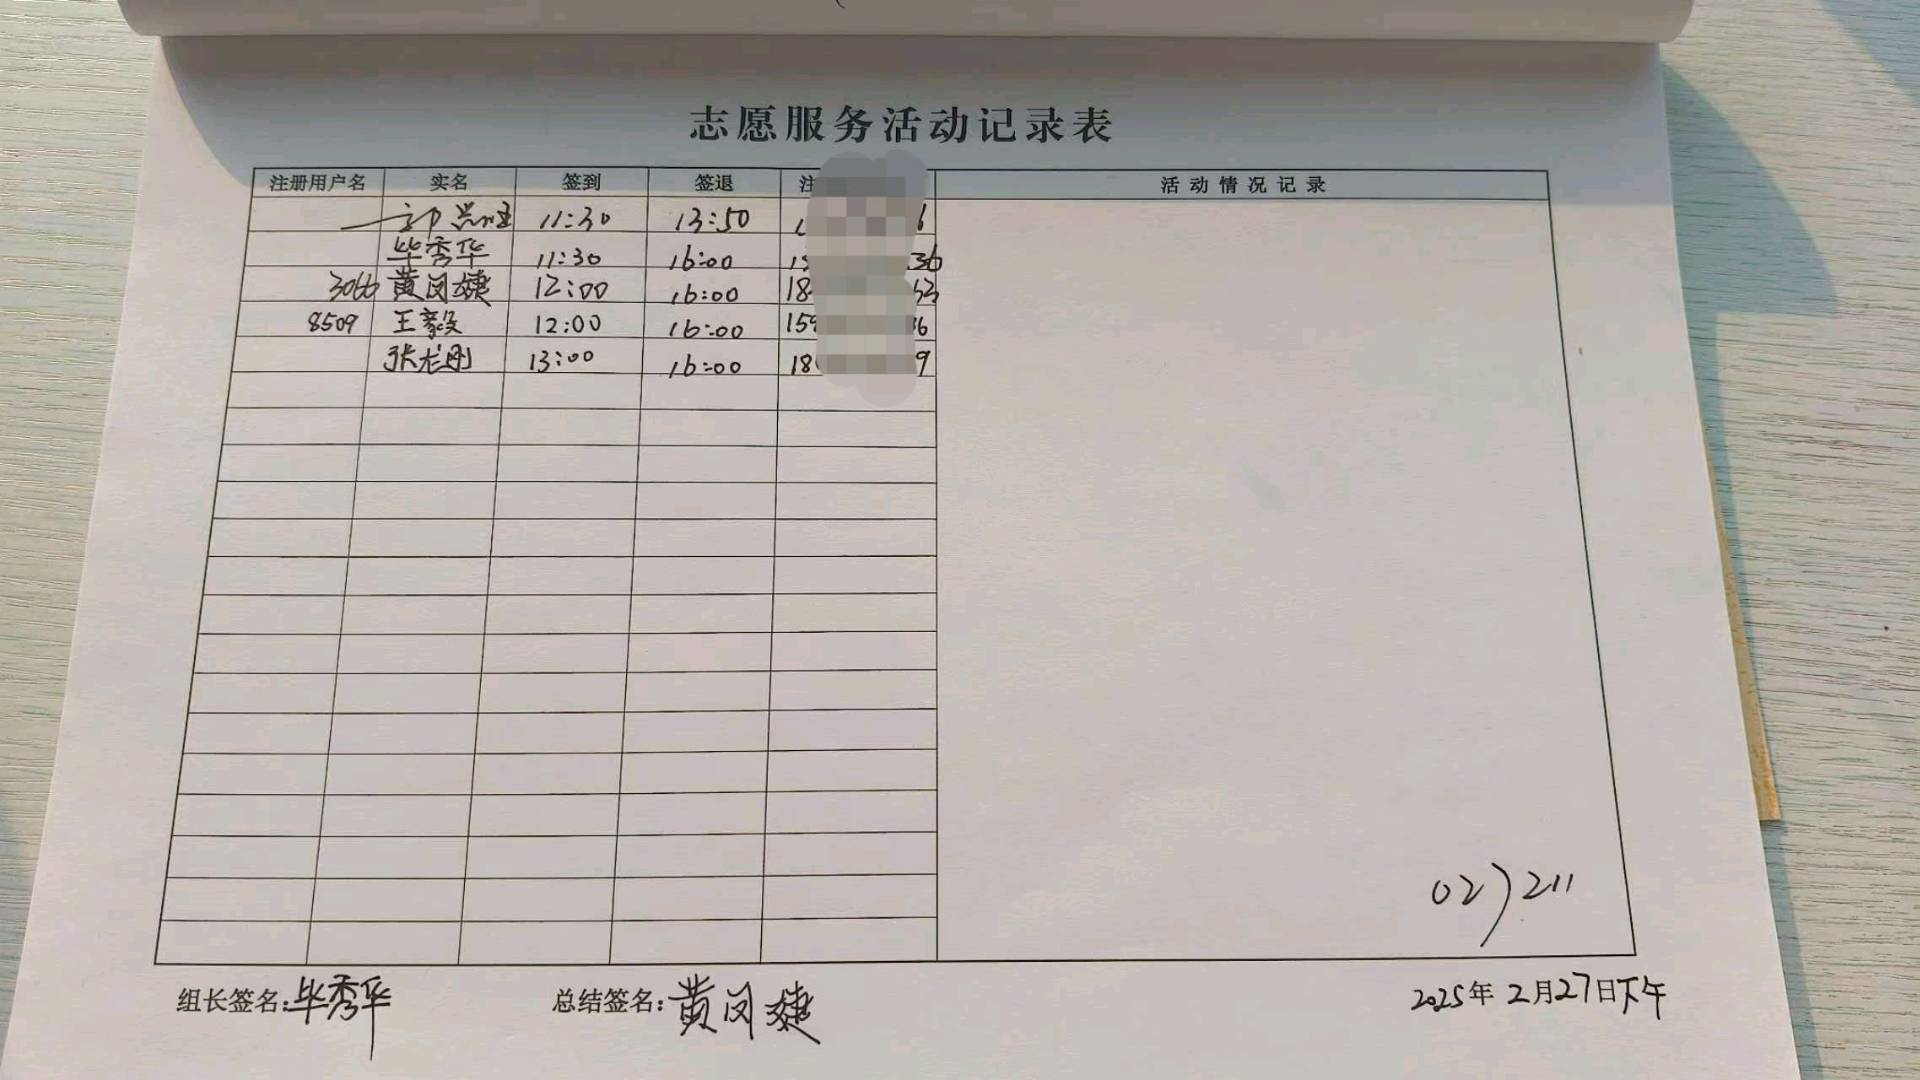 志愿服务活动记录表
注册用户名 实名 签到 签退 注 活动情况记录
11:30 13:50 6
毕秀华 11:30 16:00 36
3066 黄凤婕 12:00 16:00 18 63
8509 王毅 12:00 16:00 159 16
张龙刚 13:00 16:00 18 9
02)211
组长签名:毕秀华 总结签名:黄凤婕 2025年2月27日下午